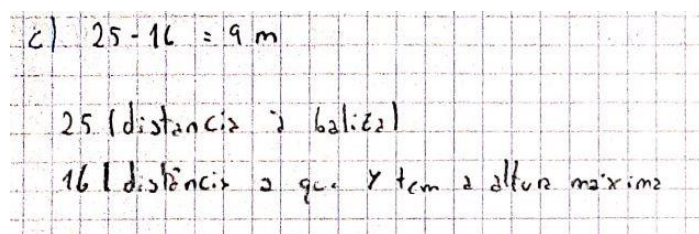 c) 25 - 16 = 9 m
25 (distância à baliza)
16 (distância a que y tem a altura máxima